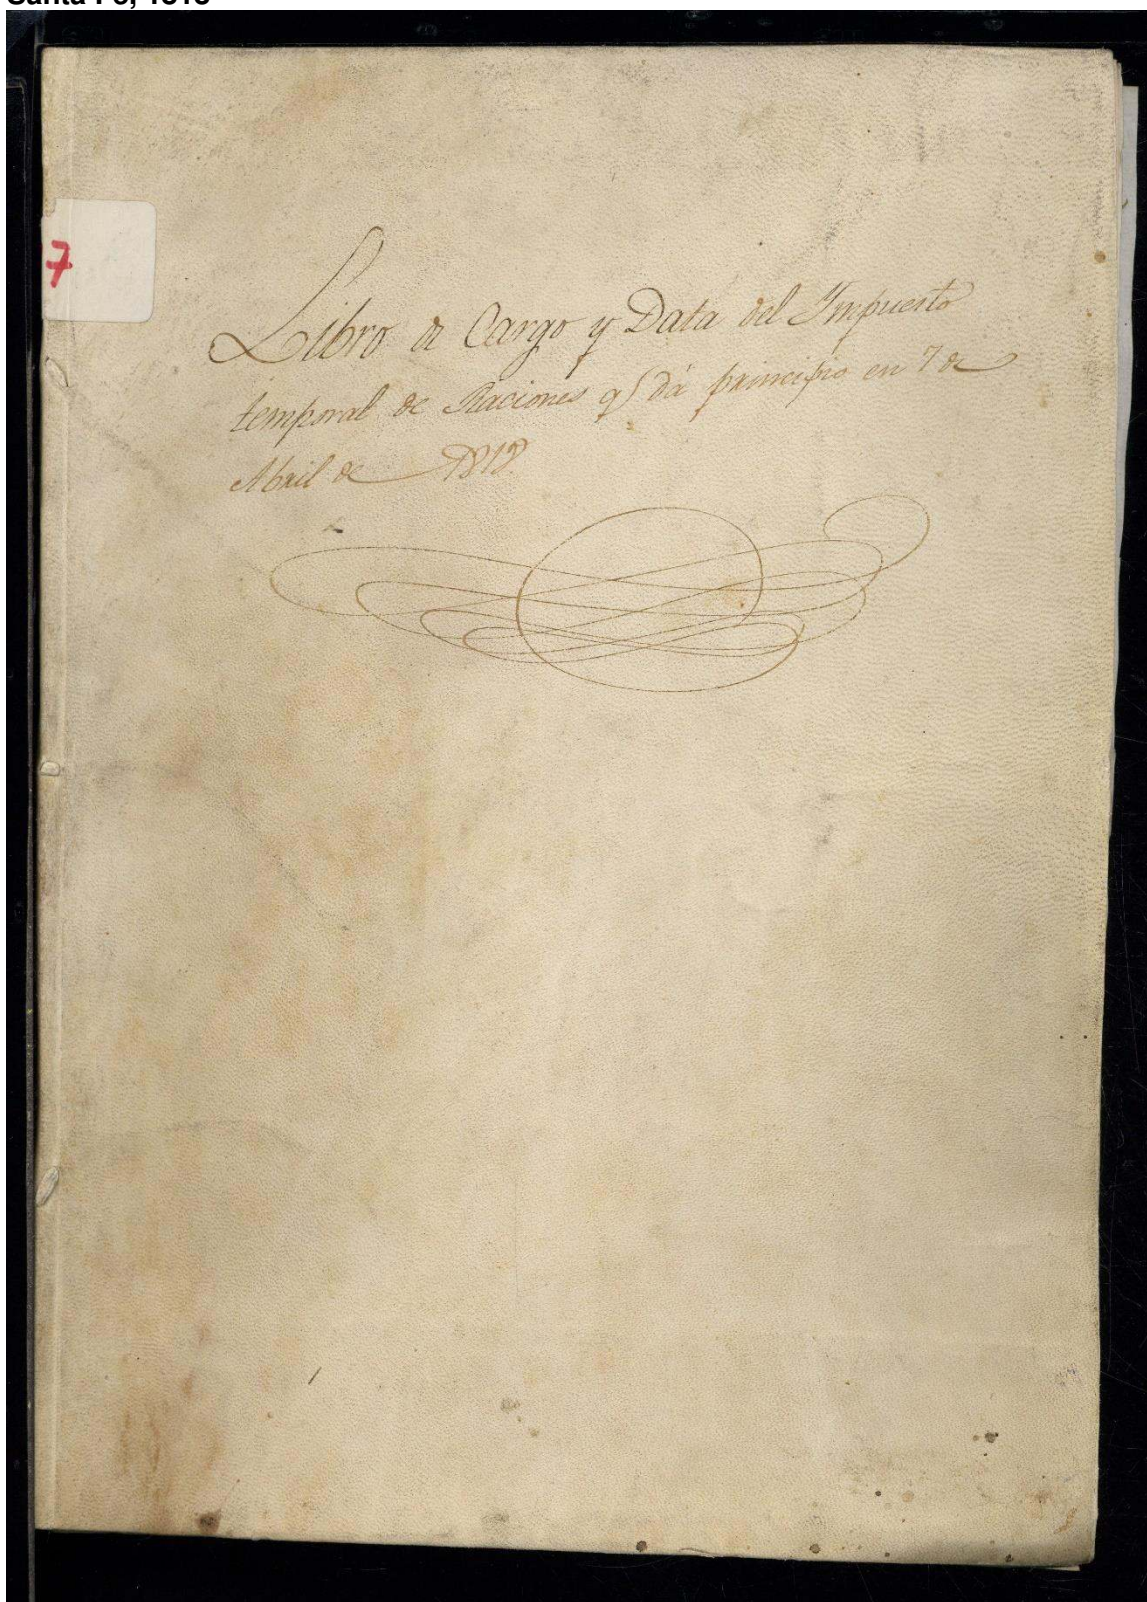 Santa Fe, 1818
7
Libro de Cargo y Data del Impuesto
temporal de Raciones q̃ dá principio en 7 de
Abril de 1818